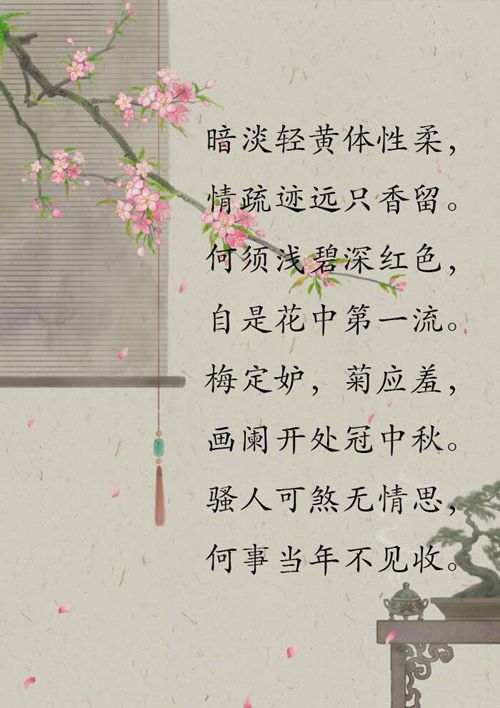 暗淡轻黄体性柔，
情疏迹远只香留。
何须浅碧深红色，
自是花中第一流。
梅定妒，菊应羞，
画阑开处冠中秋。
骚人可煞无情思，
何事当年不见收。